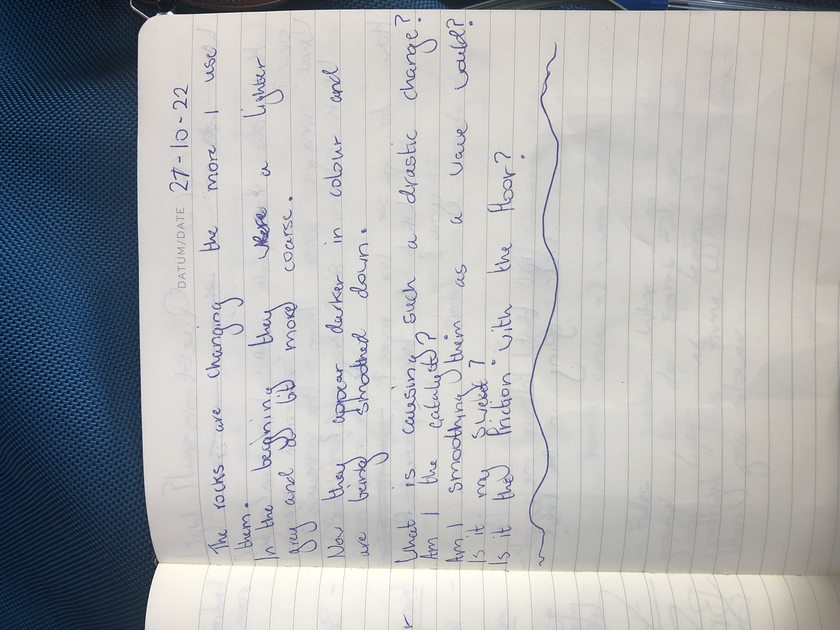 DATUM/DATE 27-10-22
The rocks are changing the more I use
them.
In the beginning they were a lighter
grey and a bit more coarse.
Now they appear darker in colour and
are being smoothed down.
What is causing such a drastic change?
Am I the catalyst?
Am I smoothing them as a wave would?
Is it my sweat?
Is it the friction with the floor?